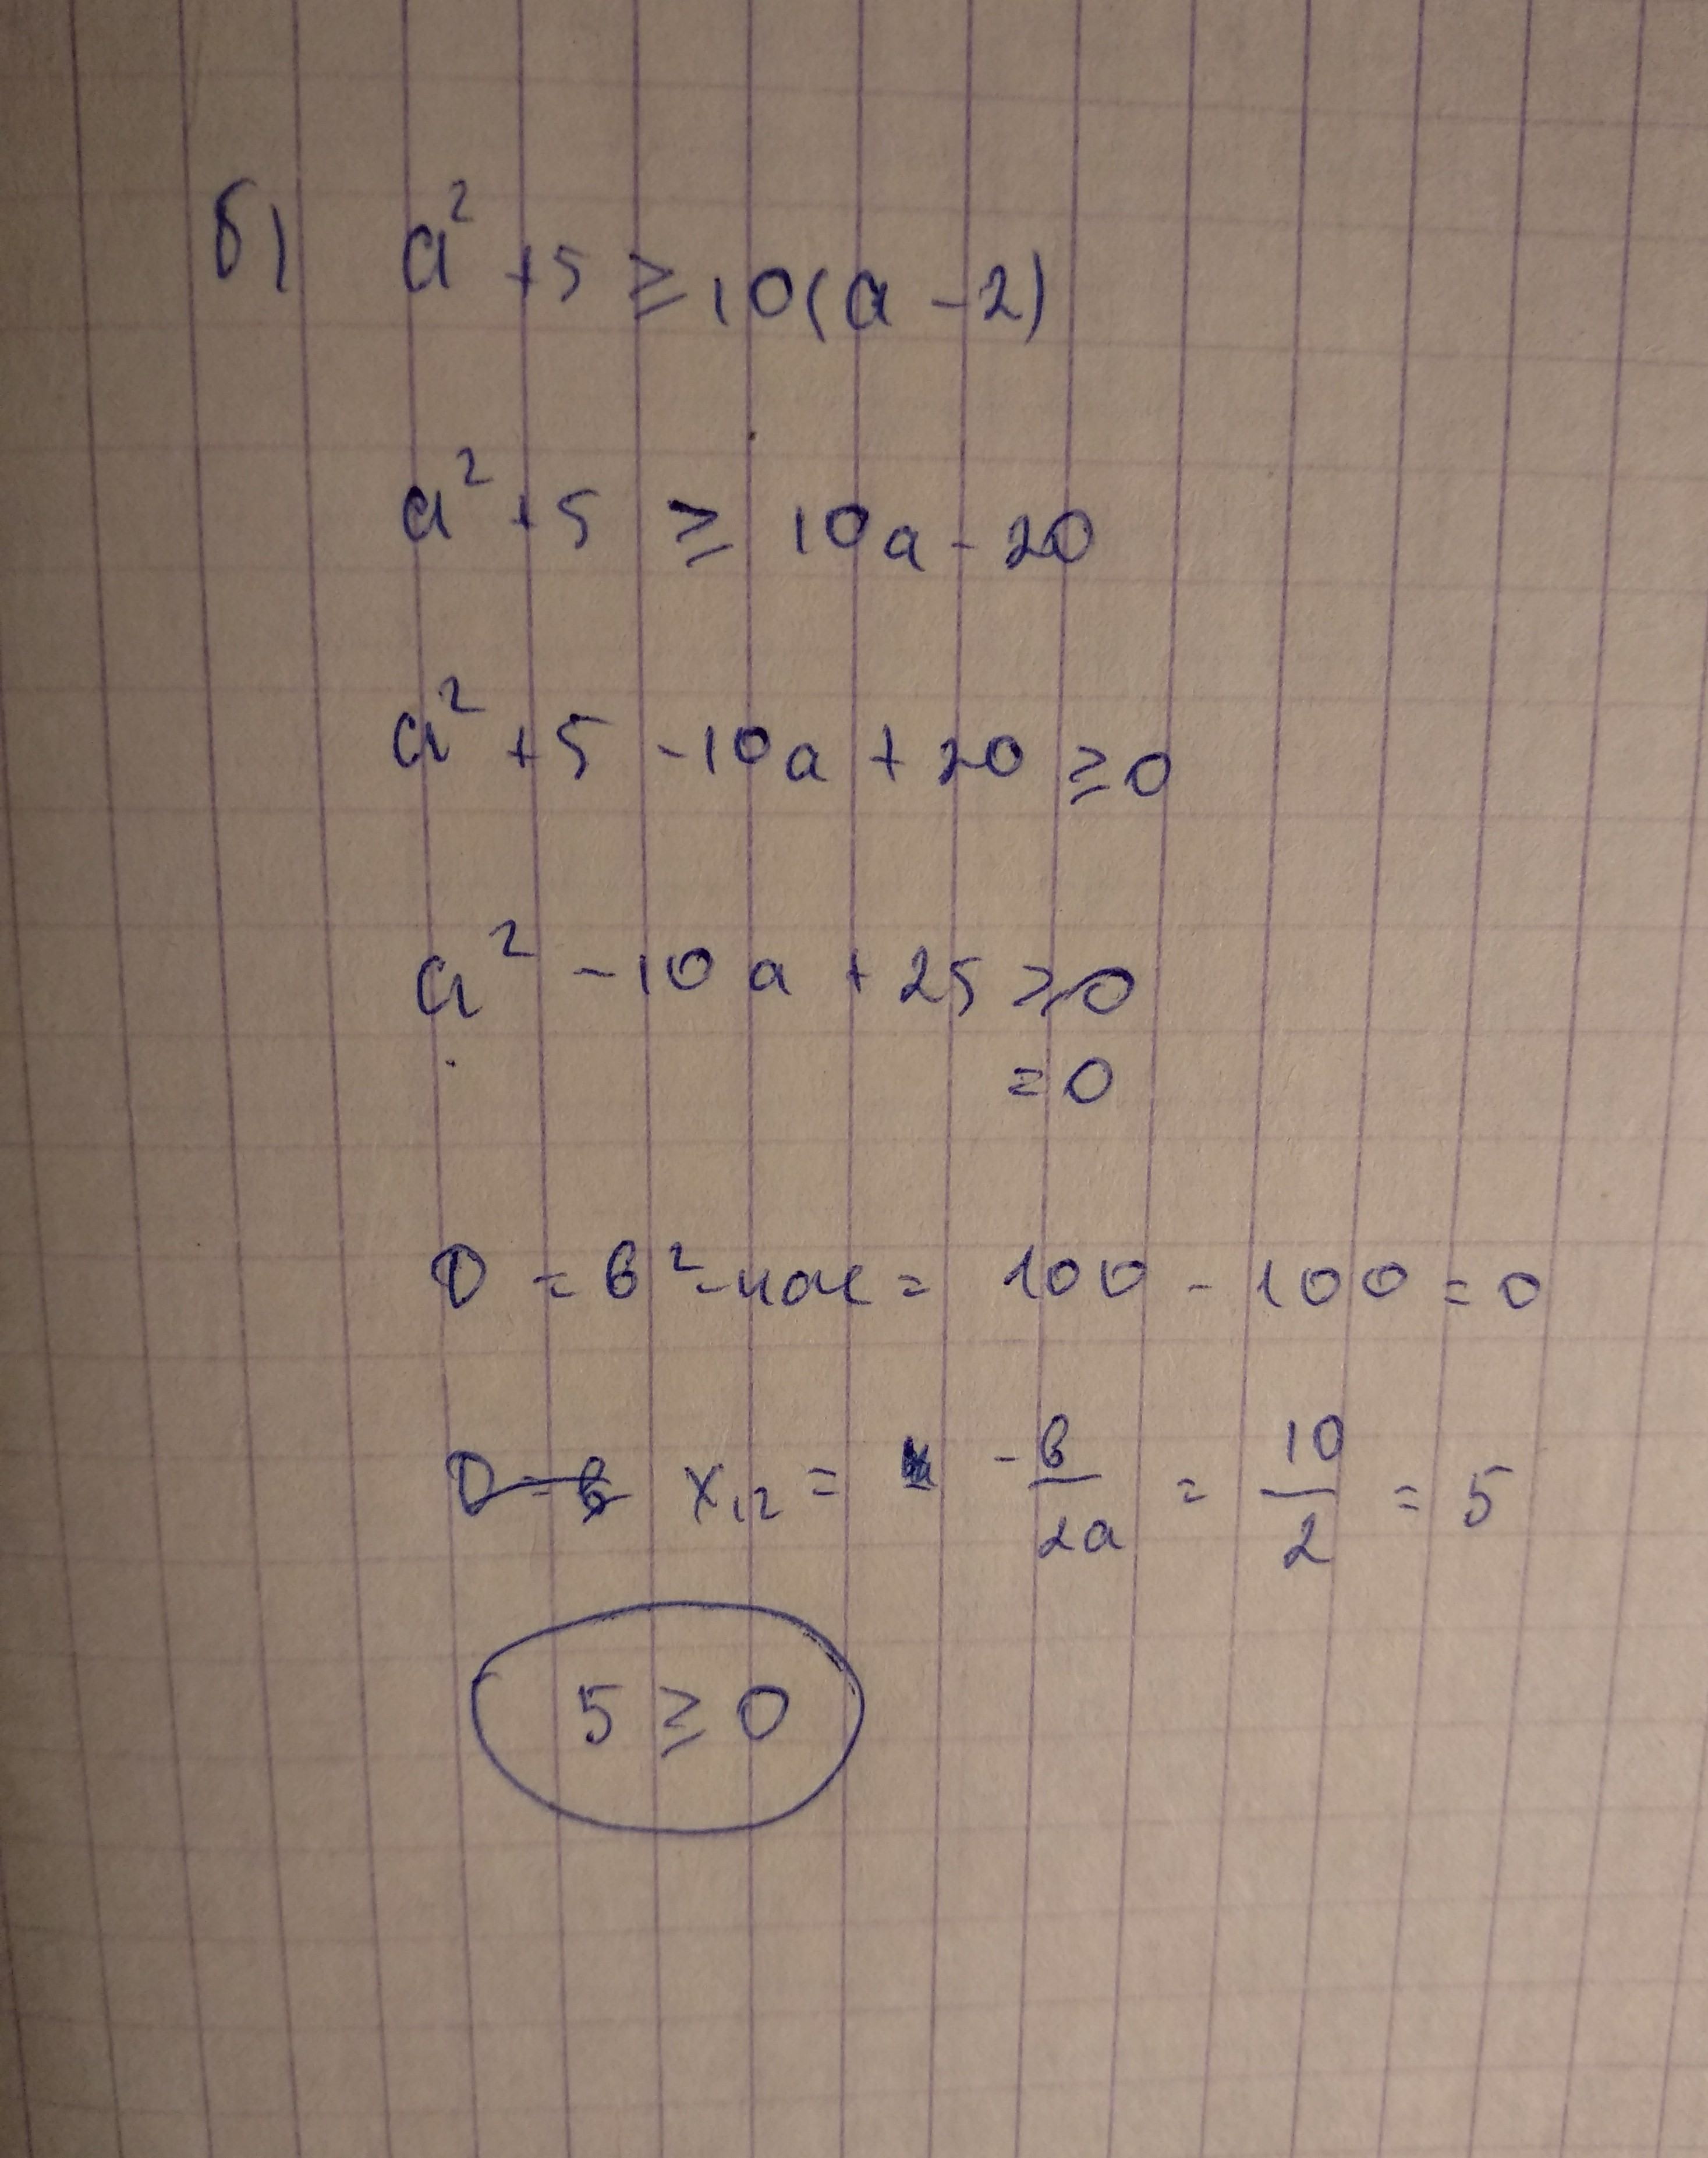 б) a² + 5 ≥ 10(a - 2)
a² + 5 ≥ 10a - 20
a² + 5 - 10a + 20 ≥ 0
a² - 10a + 25 ≥ 0
= 0
D = b² - 4ac = 100 - 100 = 0
D = b x₁,₂ = -b/2a = 10/2 = 5
5 ≥ 0